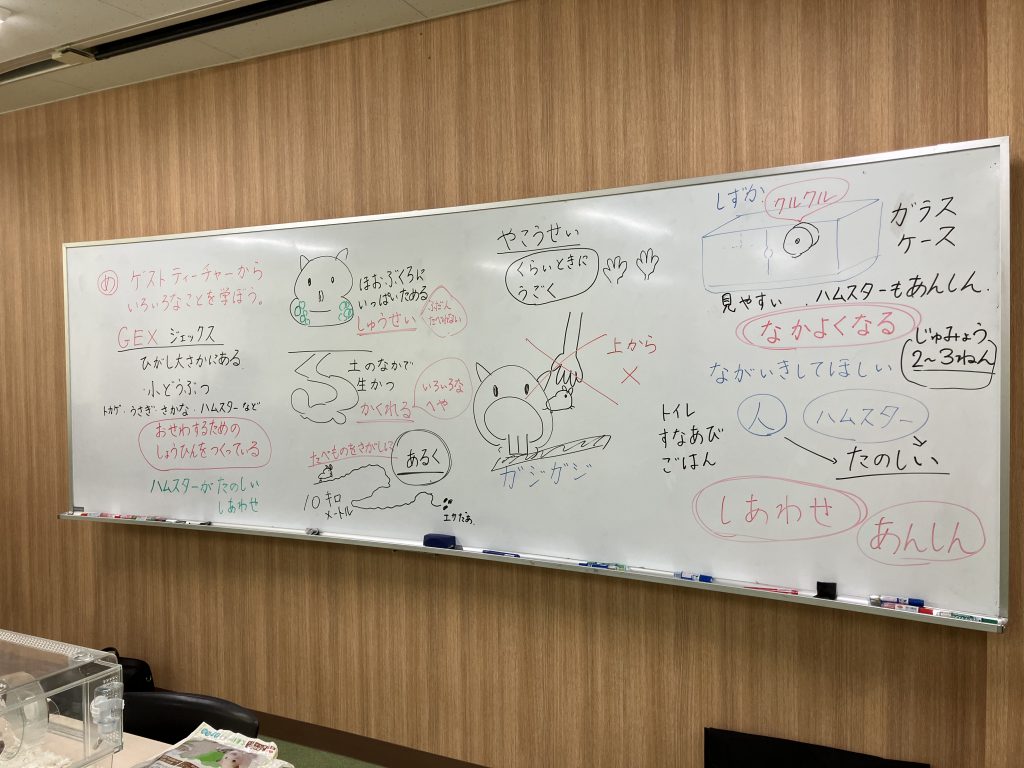 め ゲストティーチャーから
いろいろなことを学ぼう。
GEX ジェックス
ひがし大さかにある
・小どうぶつ
トカゲ・うさぎ・さかな・ハムスターなど
おせわするための
しょうひんをつくっている
ハムスターがたのしい
しあわせ
ほおぶくろに
いっぱいためる
しゅうせい
土のなかで
生かつ
かくれる
いろいろな
へや
たべものをさがして
あるく
10キロ
メートル
エサだあ
やこうせい
くらいときに
うごく
上から
×
ガジガジ
しずか
クルクル
ガラス
ケース
見やすい ・ハムスターもあんしん
なかよくなる
じゅみょう
2~3ねん
ながいきしてほしい
トイレ
すなあび
ごはん
人
ハムスター
たのしい
しあわせ
あんしん